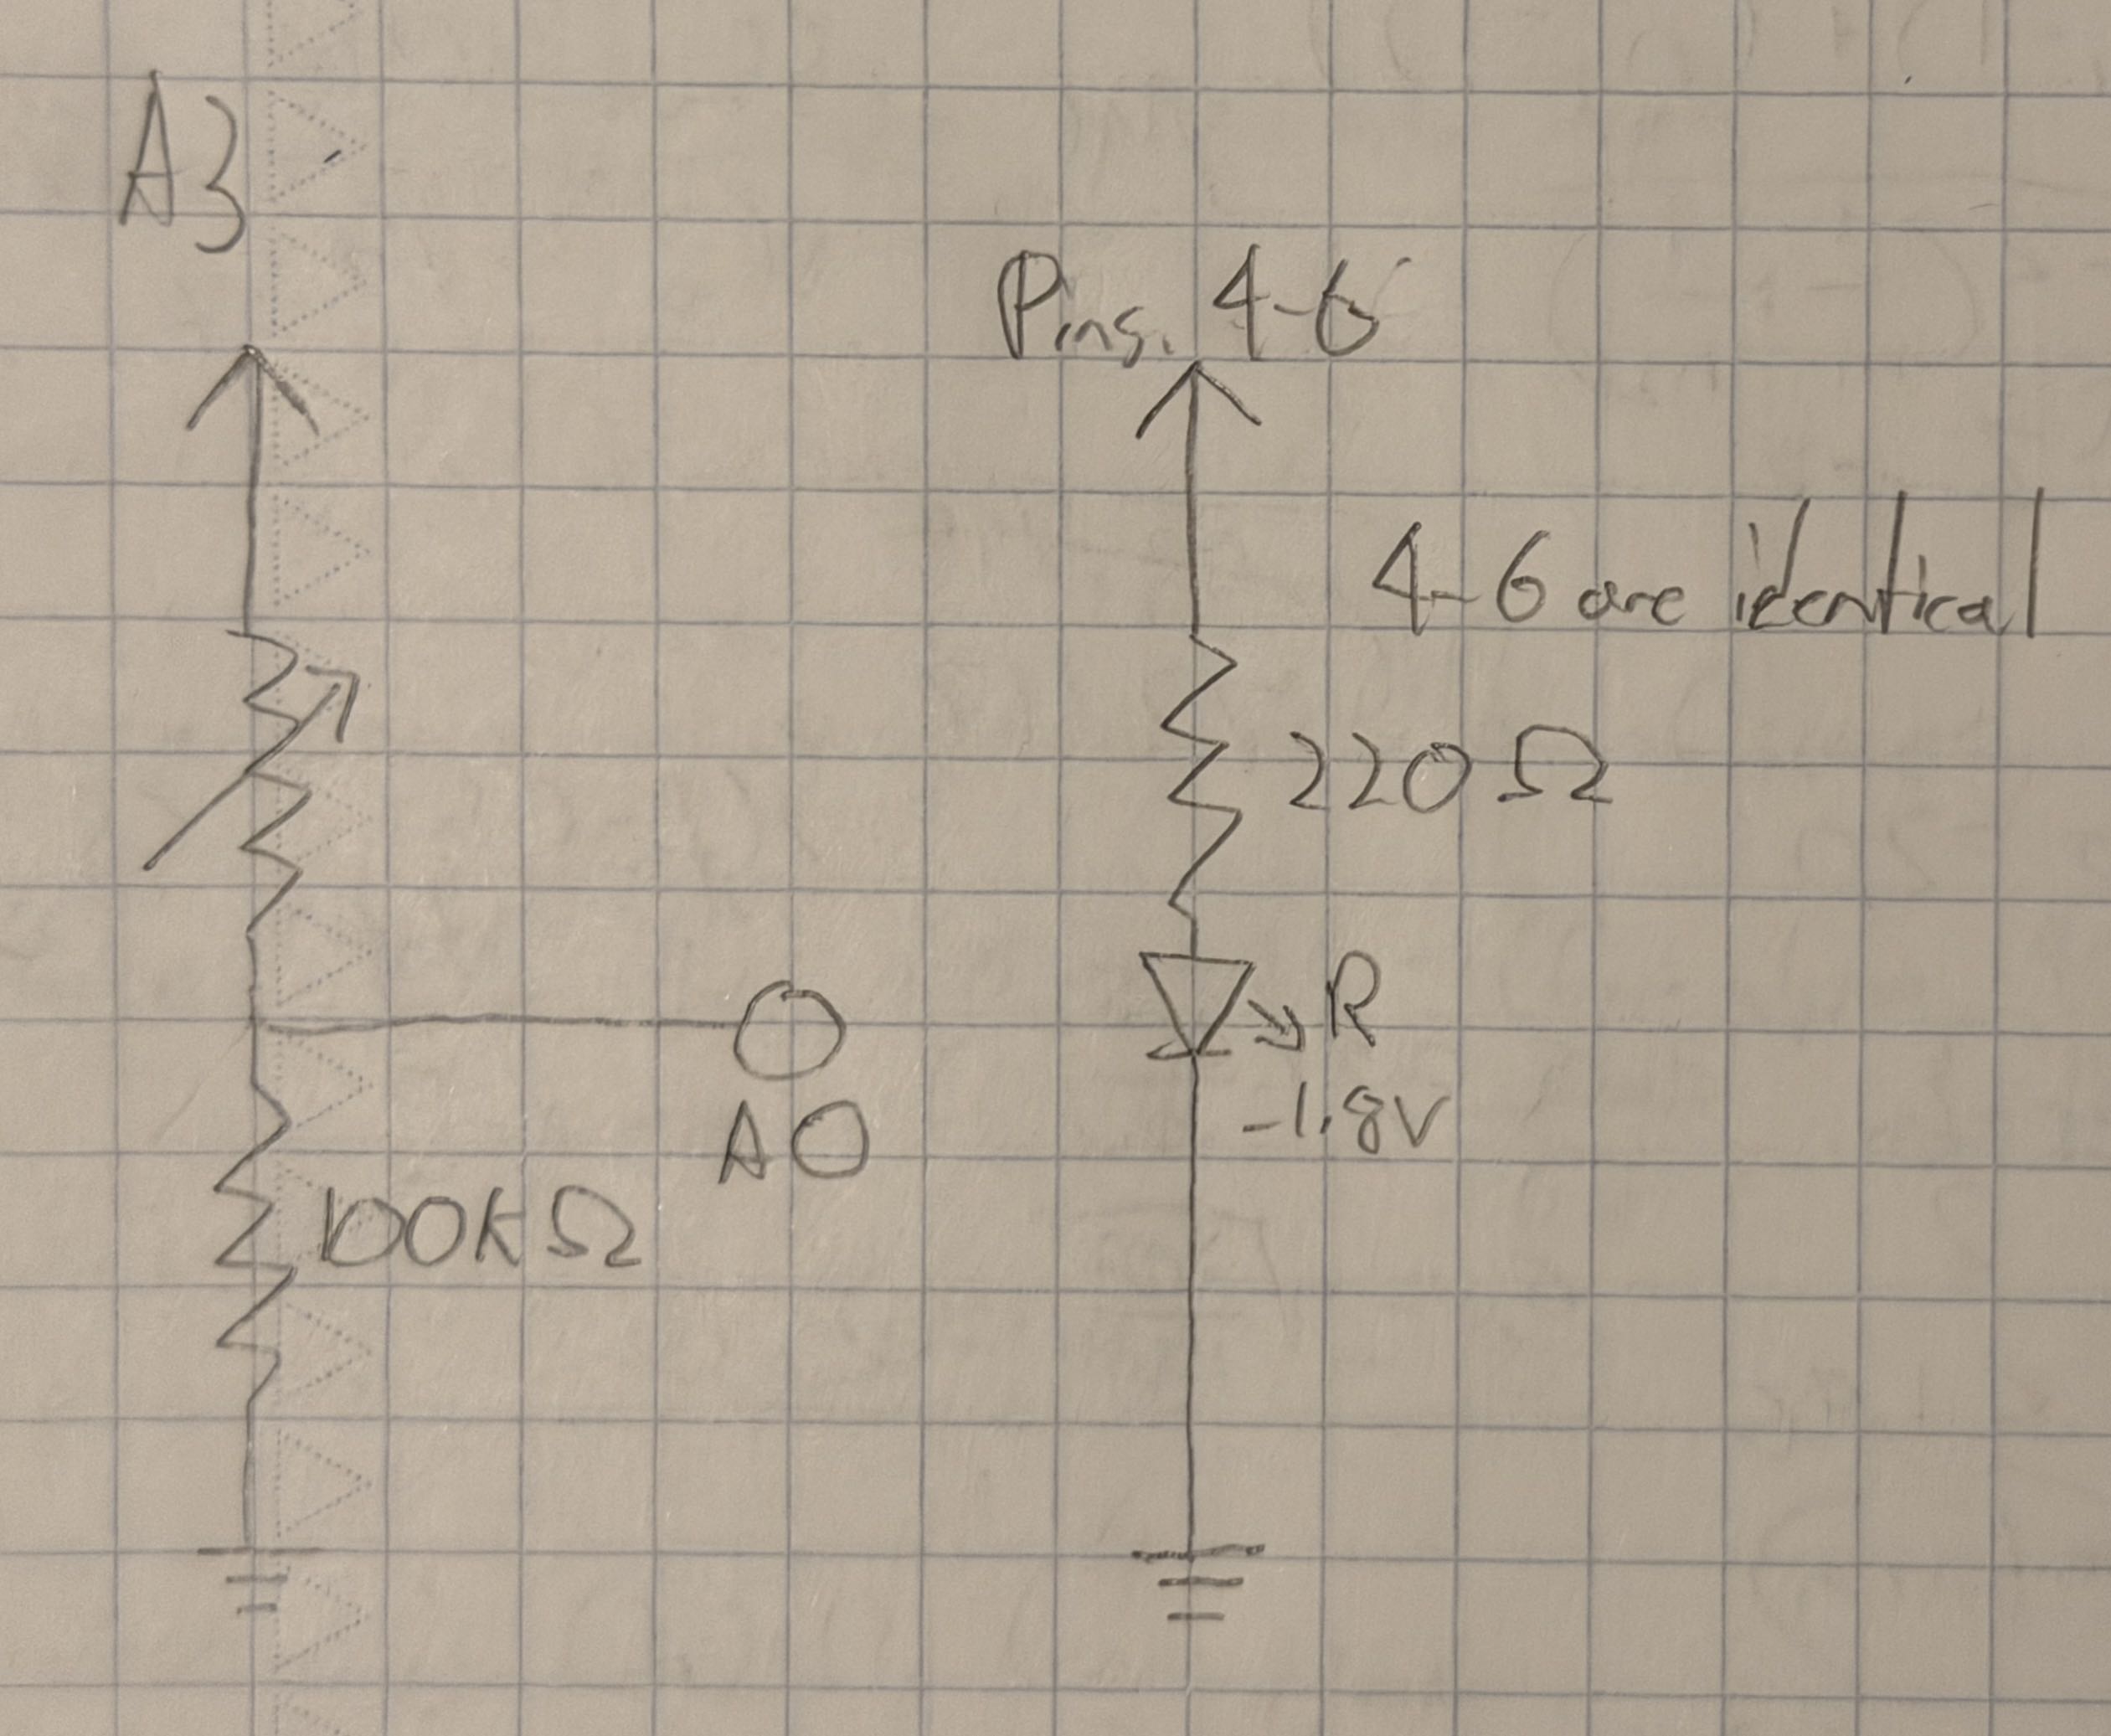 A3
Pins. 4-6
4-6 are identical
220Ω
R
-1.8V
A0
100kΩ